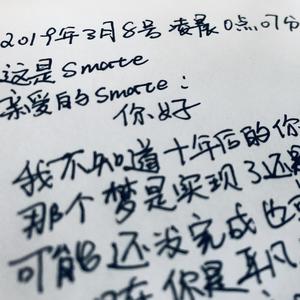 2019年3月8号凌晨0点07分
这是Smate
亲爱的Smate:
你好
我不知道十年后的你
那个梦是实现了还是
可能还没完成也可
你是